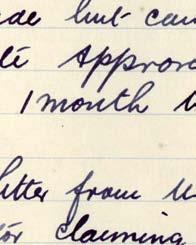 ade but can
te approv
1 month
letter from
for claiming